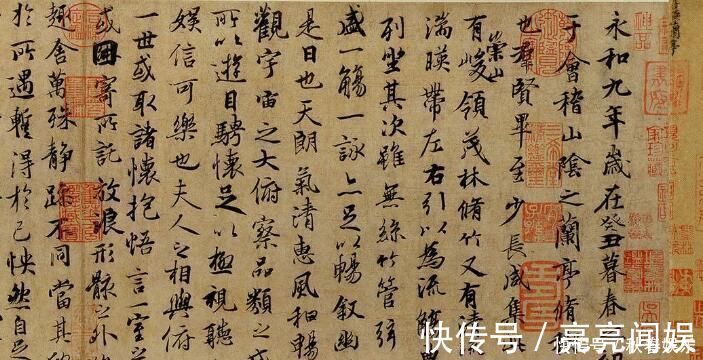 永和九年歲在癸丑暮春
于會稽山陰之蘭亭脩
也羣賢畢至少長咸集
有崇山峻領茂林脩竹又有清
湍暎帶左右引以為流
列坐其次雖無絲竹管弦
盛一觴一詠亦足以暢敘幽
是日也天朗氣清惠風和暢
觀宇宙之大俯察品類之
所以遊目騁懷足以極視聽
娛信可樂也夫人之相與俯
一世或取諸懷抱悟言一室之
或因寄所託放浪形骸之外
趣舍萬殊静躁不同當其
於所遇蹔得於己怏然自足
快传号 / 亮亮闻娱